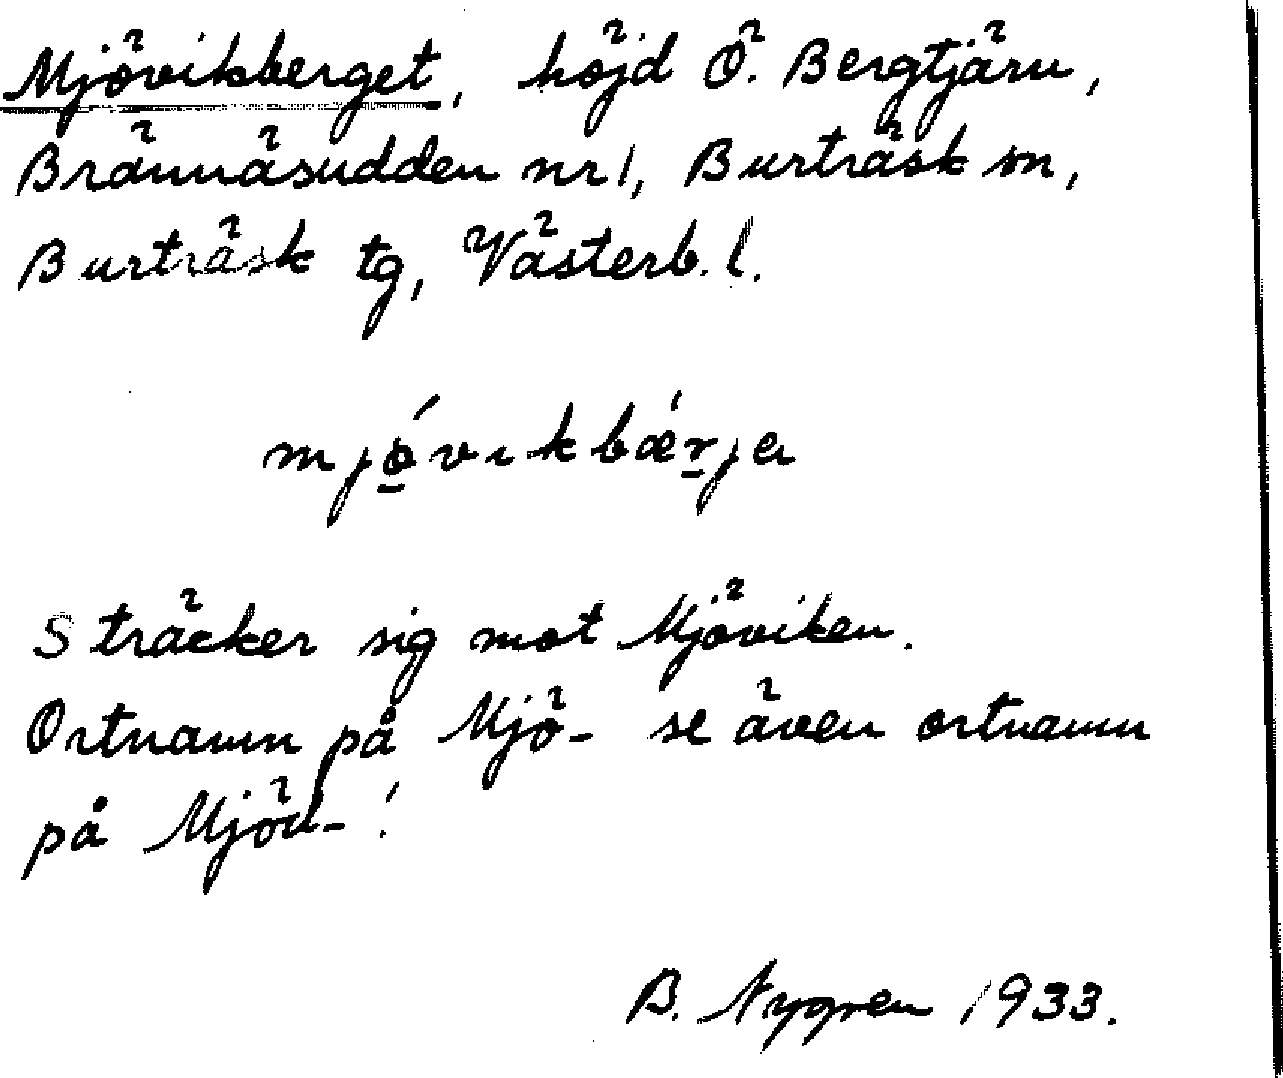 Mjövikberget, höjd Ö. Bergtjärn,
Brännäsudden nr 1, Burträsk sn,
Burträsk tg, Västerb. l.
mjö́vikbǽrja
Sträcker sig mot Mjöviken.
Ortnamn på Mjö- se även ortnamn
på Mjöd-!
B. Nygren 1933.